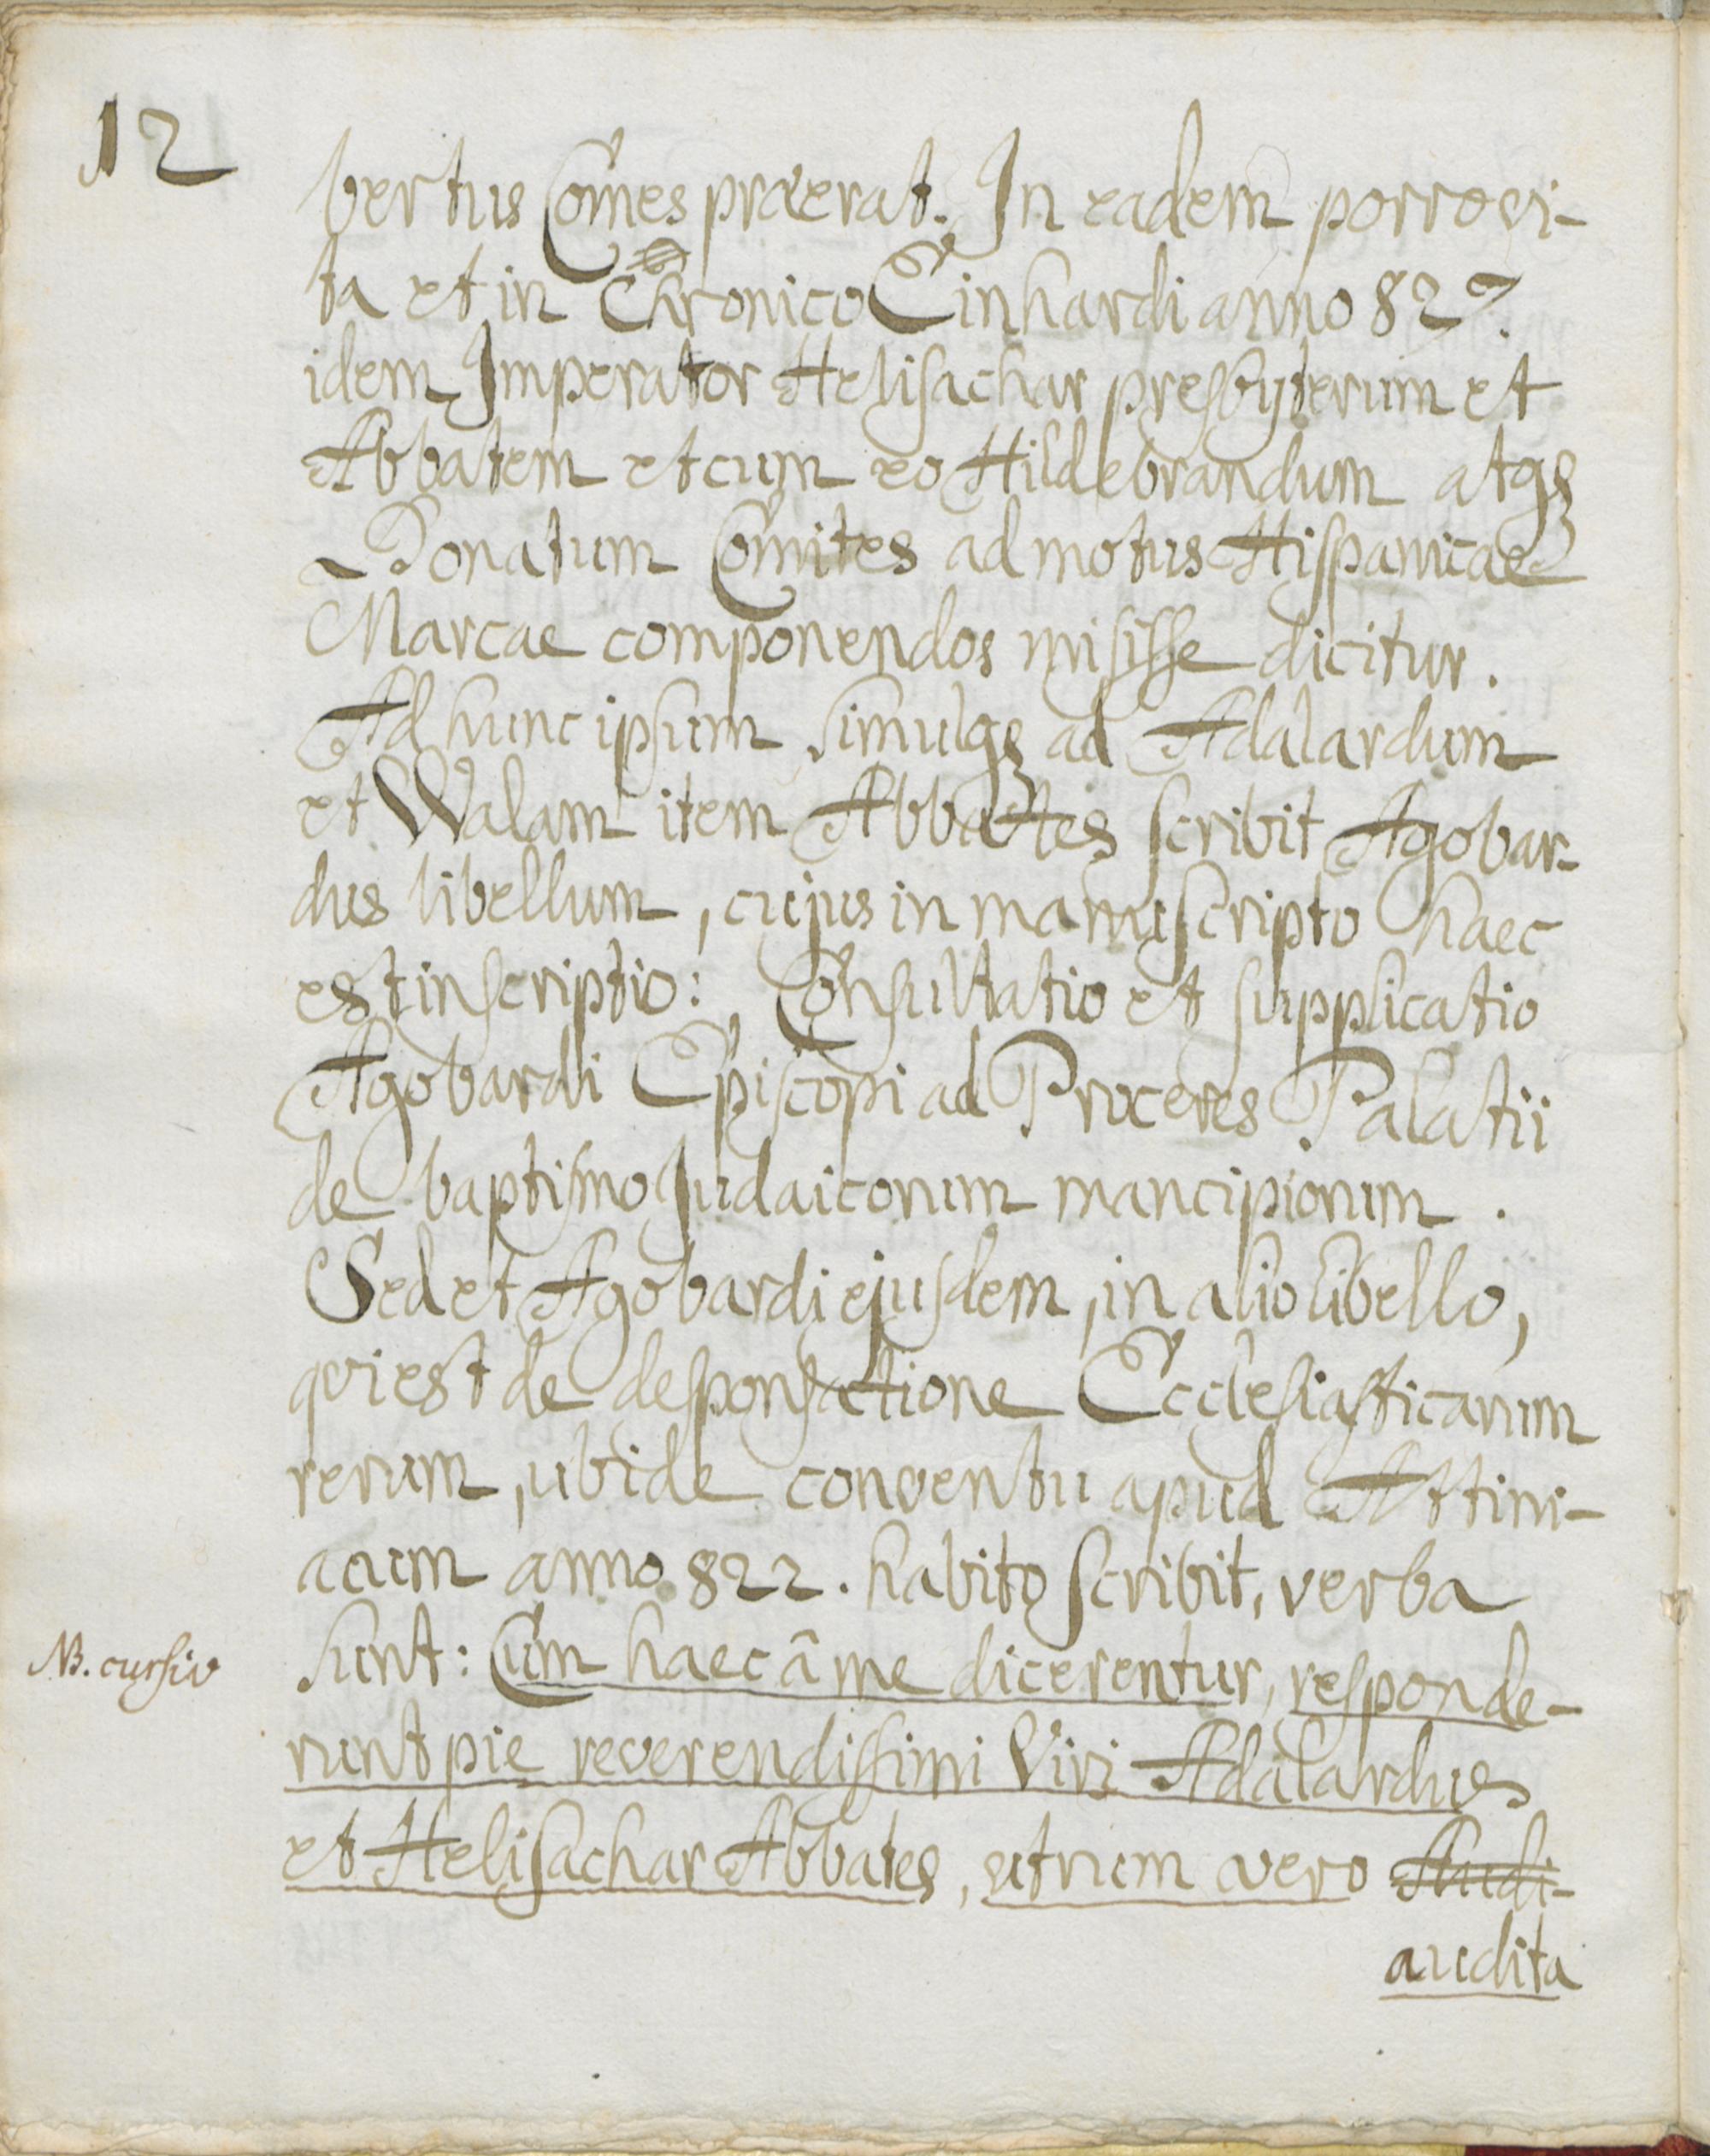 12
bertus Comes praeerat. In eadem porro vi-
ta et in Chronico Einhardi anno 827.
idem Imperator Helisachar presbyterum et
Abbatem et cum eo Hildebrandum atqꝫ
Donatum Comites ad motus Hispanicae
Marcae componendos misisse dicitur.
Ad hunc ipsum simulqꝫ ad Adalardum
et Walam item Abbates scribit Agobar-
dus libellum, cujus in manuscripto haec
est inscriptio: Consultatio et supplicatio
Agobardi Episcopi ad Proceres Palatii
de baptismo Judaicorum mancipiorum.
Sed et Agobardi ejusdem, in alio libello,
qui est de desponsatione Ecclesiasticarum
rerum, ubi de conventu apud Attini-
acum anno 822. habito scribit, verba
NB. cursiv
sunt: Cum haec â me dicerentur, responde-
runt pie reverendissimi Viri Adalardus
et Helisachar Abbates, utrum vero Audi-
audita